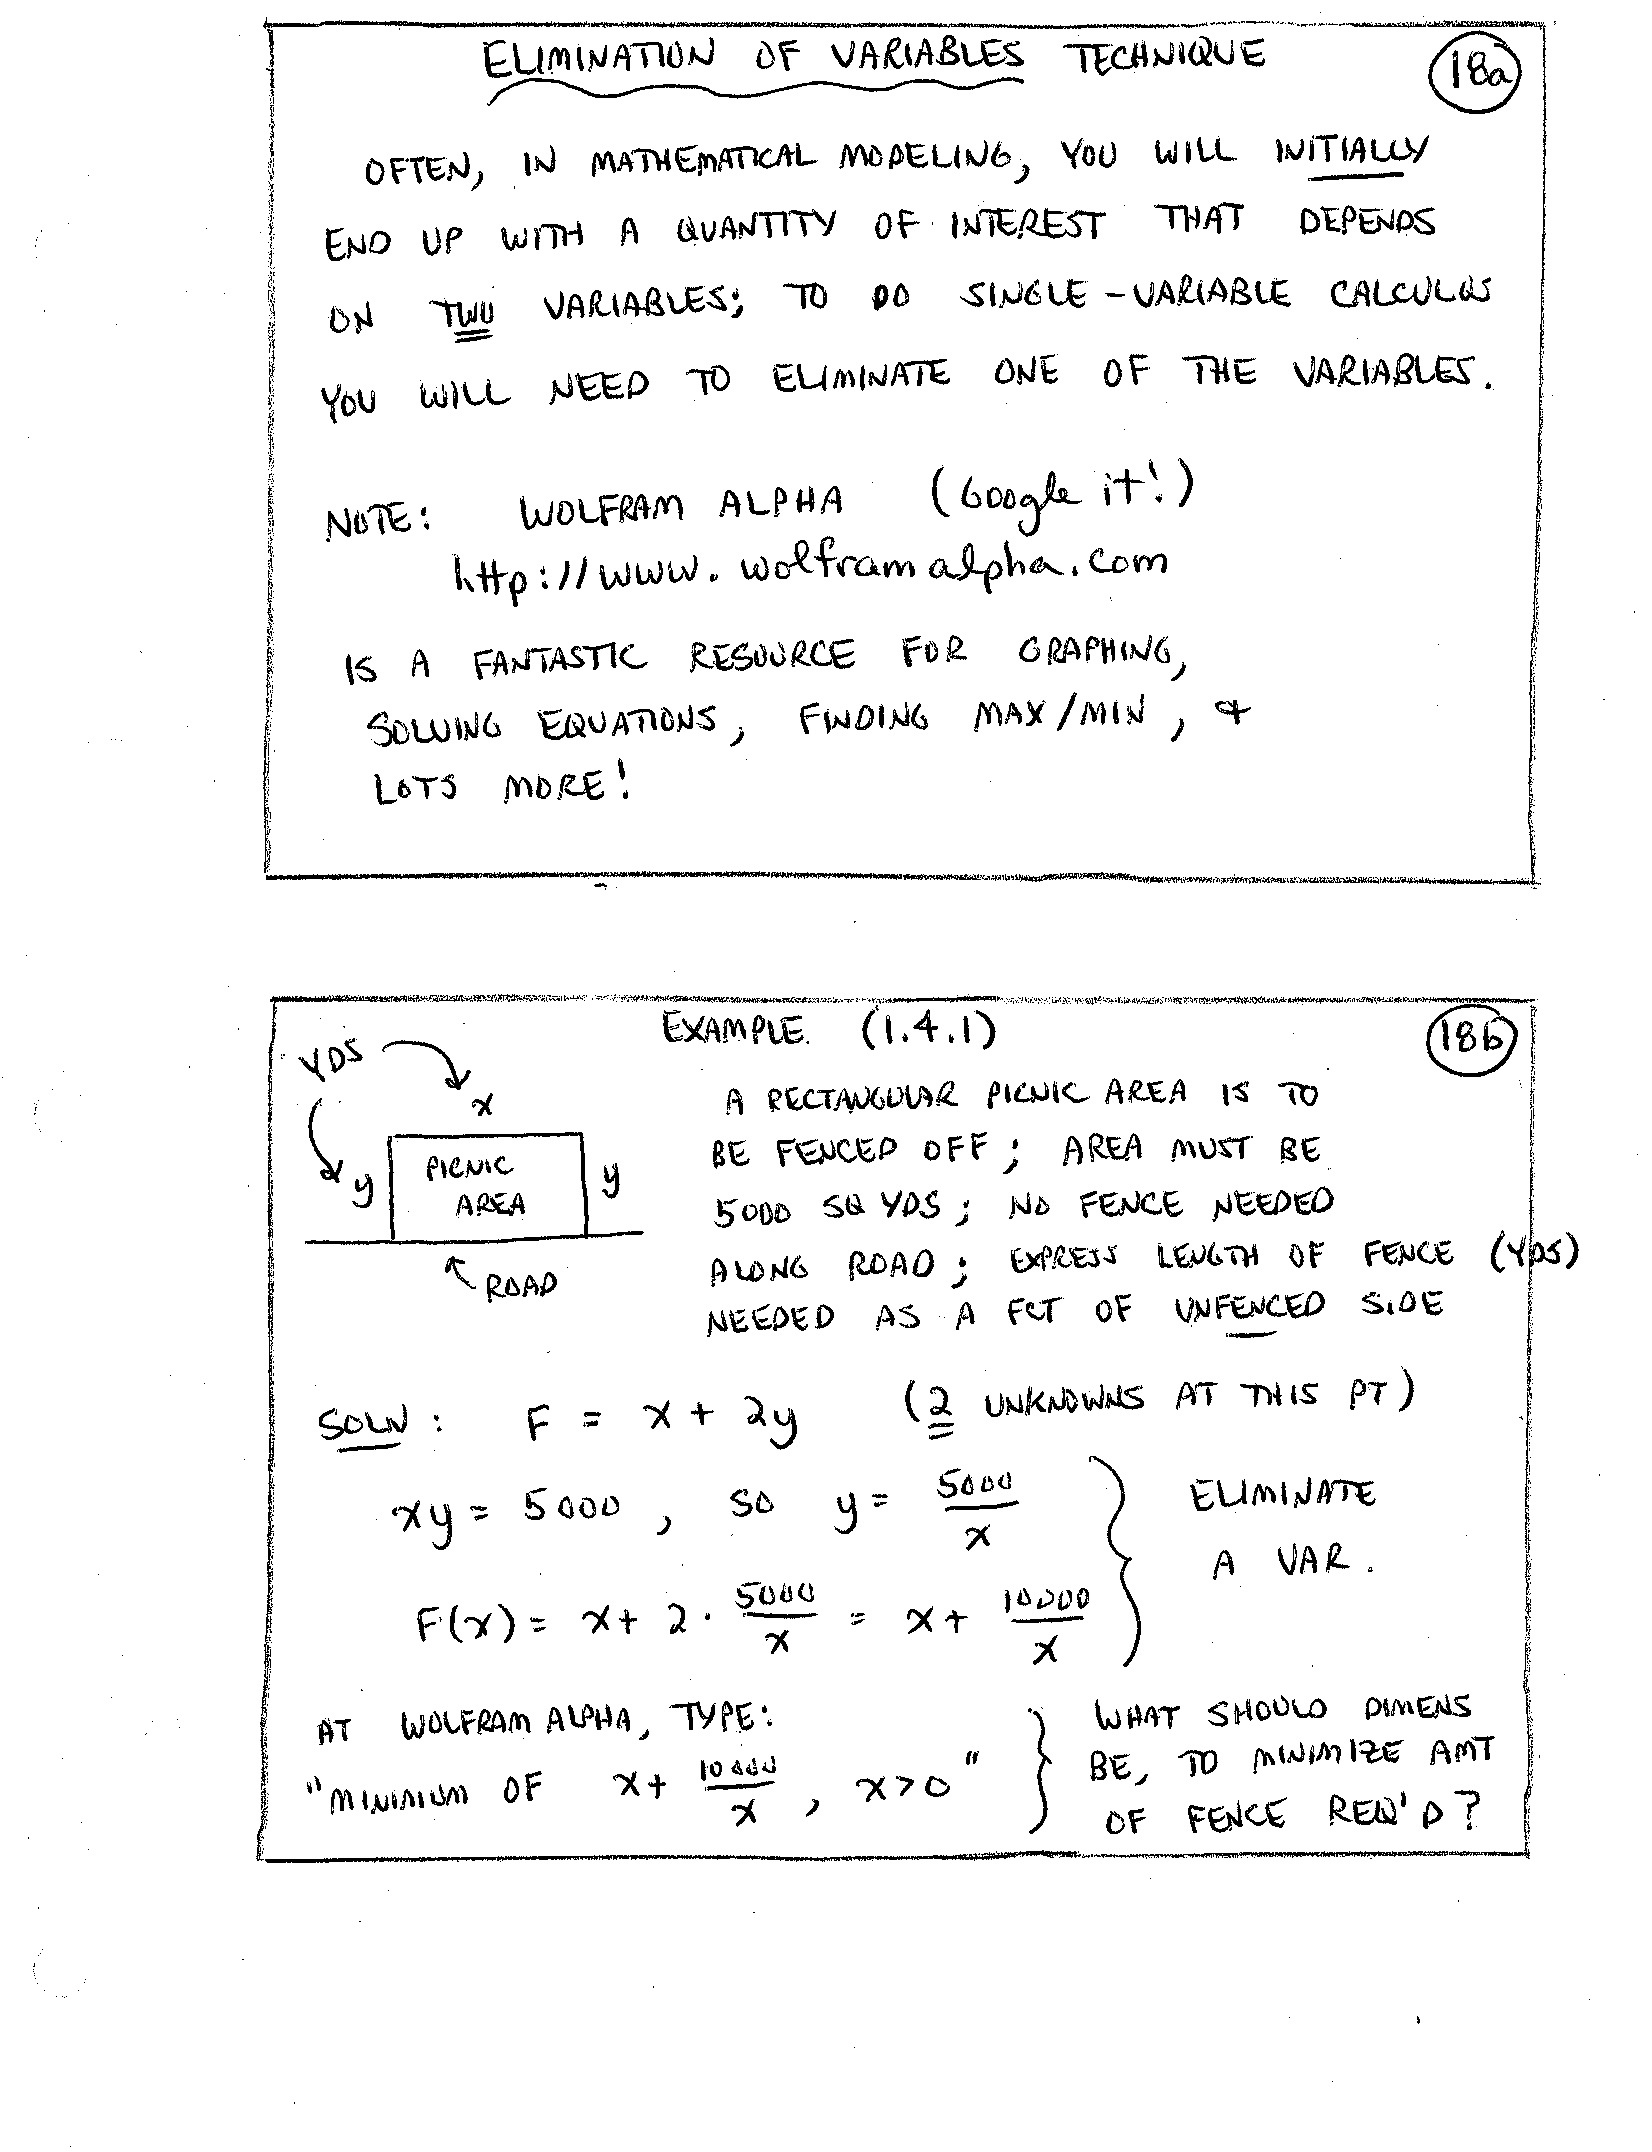 ELIMINATION OF VARIABLES TECHNIQUE
18a
OFTEN, IN MATHEMATICAL MODELING, YOU WILL INITIALLY
END UP WITH A QUANTITY OF INTEREST THAT DEPENDS
ON TWO VARIABLES; TO DO SINGLE-VARIABLE CALCULUS
YOU WILL NEED TO ELIMINATE ONE OF THE VARIABLES.
NOTE: WOLFRAM ALPHA (Google it!)
http://www.wolframalpha.com
IS A FANTASTIC RESOURCE FOR GRAPHING,
SOLVING EQUATIONS, FINDING MAX/MIN, &
LOTS MORE!
EXAMPLE (1.4.1)
18b
YDS
x
y
PICNIC
AREA
y
ROAD
A RECTANGULAR PICNIC AREA IS TO
BE FENCED OFF; AREA MUST BE
5000 SQ YDS; NO FENCE NEEDED
ALONG ROAD; EXPRESS LENGTH OF FENCE (YDS)
NEEDED AS A FCT OF UNFENCED SIDE
SOLN: F = x + 2y (2 UNKNOWNS AT THIS PT)
xy = 5000, SO y = 5000/x
ELIMINATE
A VAR.
F(x) = x + 2 · 5000/x = x + 10000/x
AT WOLFRAM ALPHA, TYPE:
"MINIMUM OF x + 10000/x, x>0"
WHAT SHOULD DIMENS
BE, TO MINIMIZE AMT
OF FENCE REQ'D?